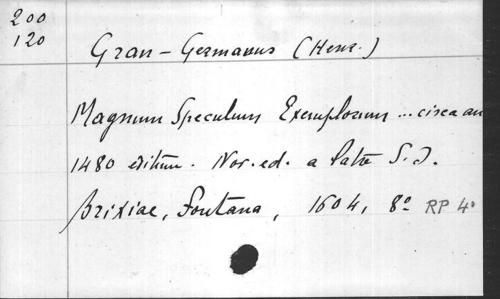 200
120
Gran - Germanus (Henr.)
Magnum Speculum Exemplorum ... circa an
1480 editum. Nov. ed. a Patre S.J.
Brixiae, Fontana, 1604, 8º RP 4º